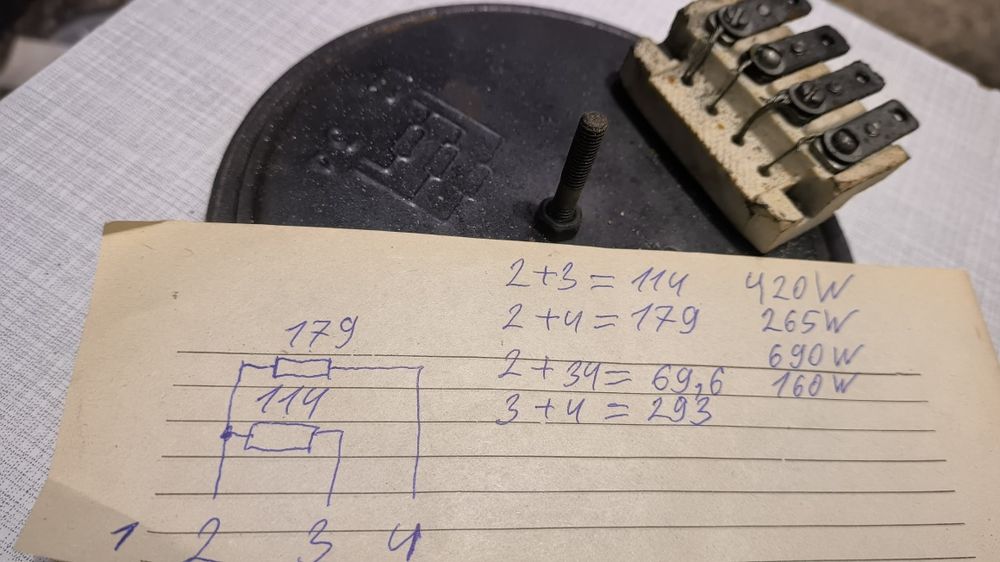 2+3 = 114 420W
2+4 = 179 265W
690W
2+34= 69,6 160W
3+4 = 293
179
114
1 2 3 4